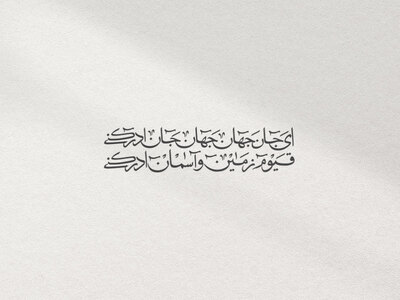 ای جان جهان جهان جان ادرکنی
قیوم زمین و آسمان ادرکنی